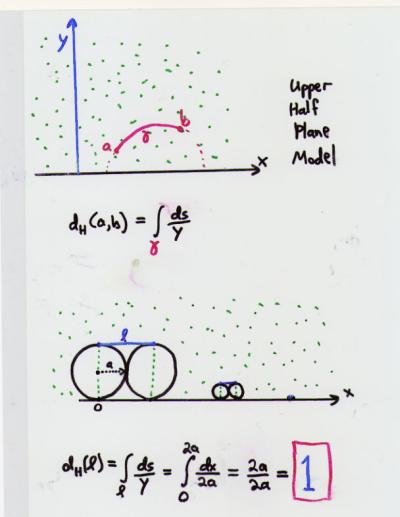 y
a
γ
b
x
Upper
Half
Plane
Model
d_H(a,b) = ∫_γ ds/y
l
a
0
x
d_H(l) = ∫_l ds/y = ∫_0^{2a} dx/2a = 2a/2a = 1